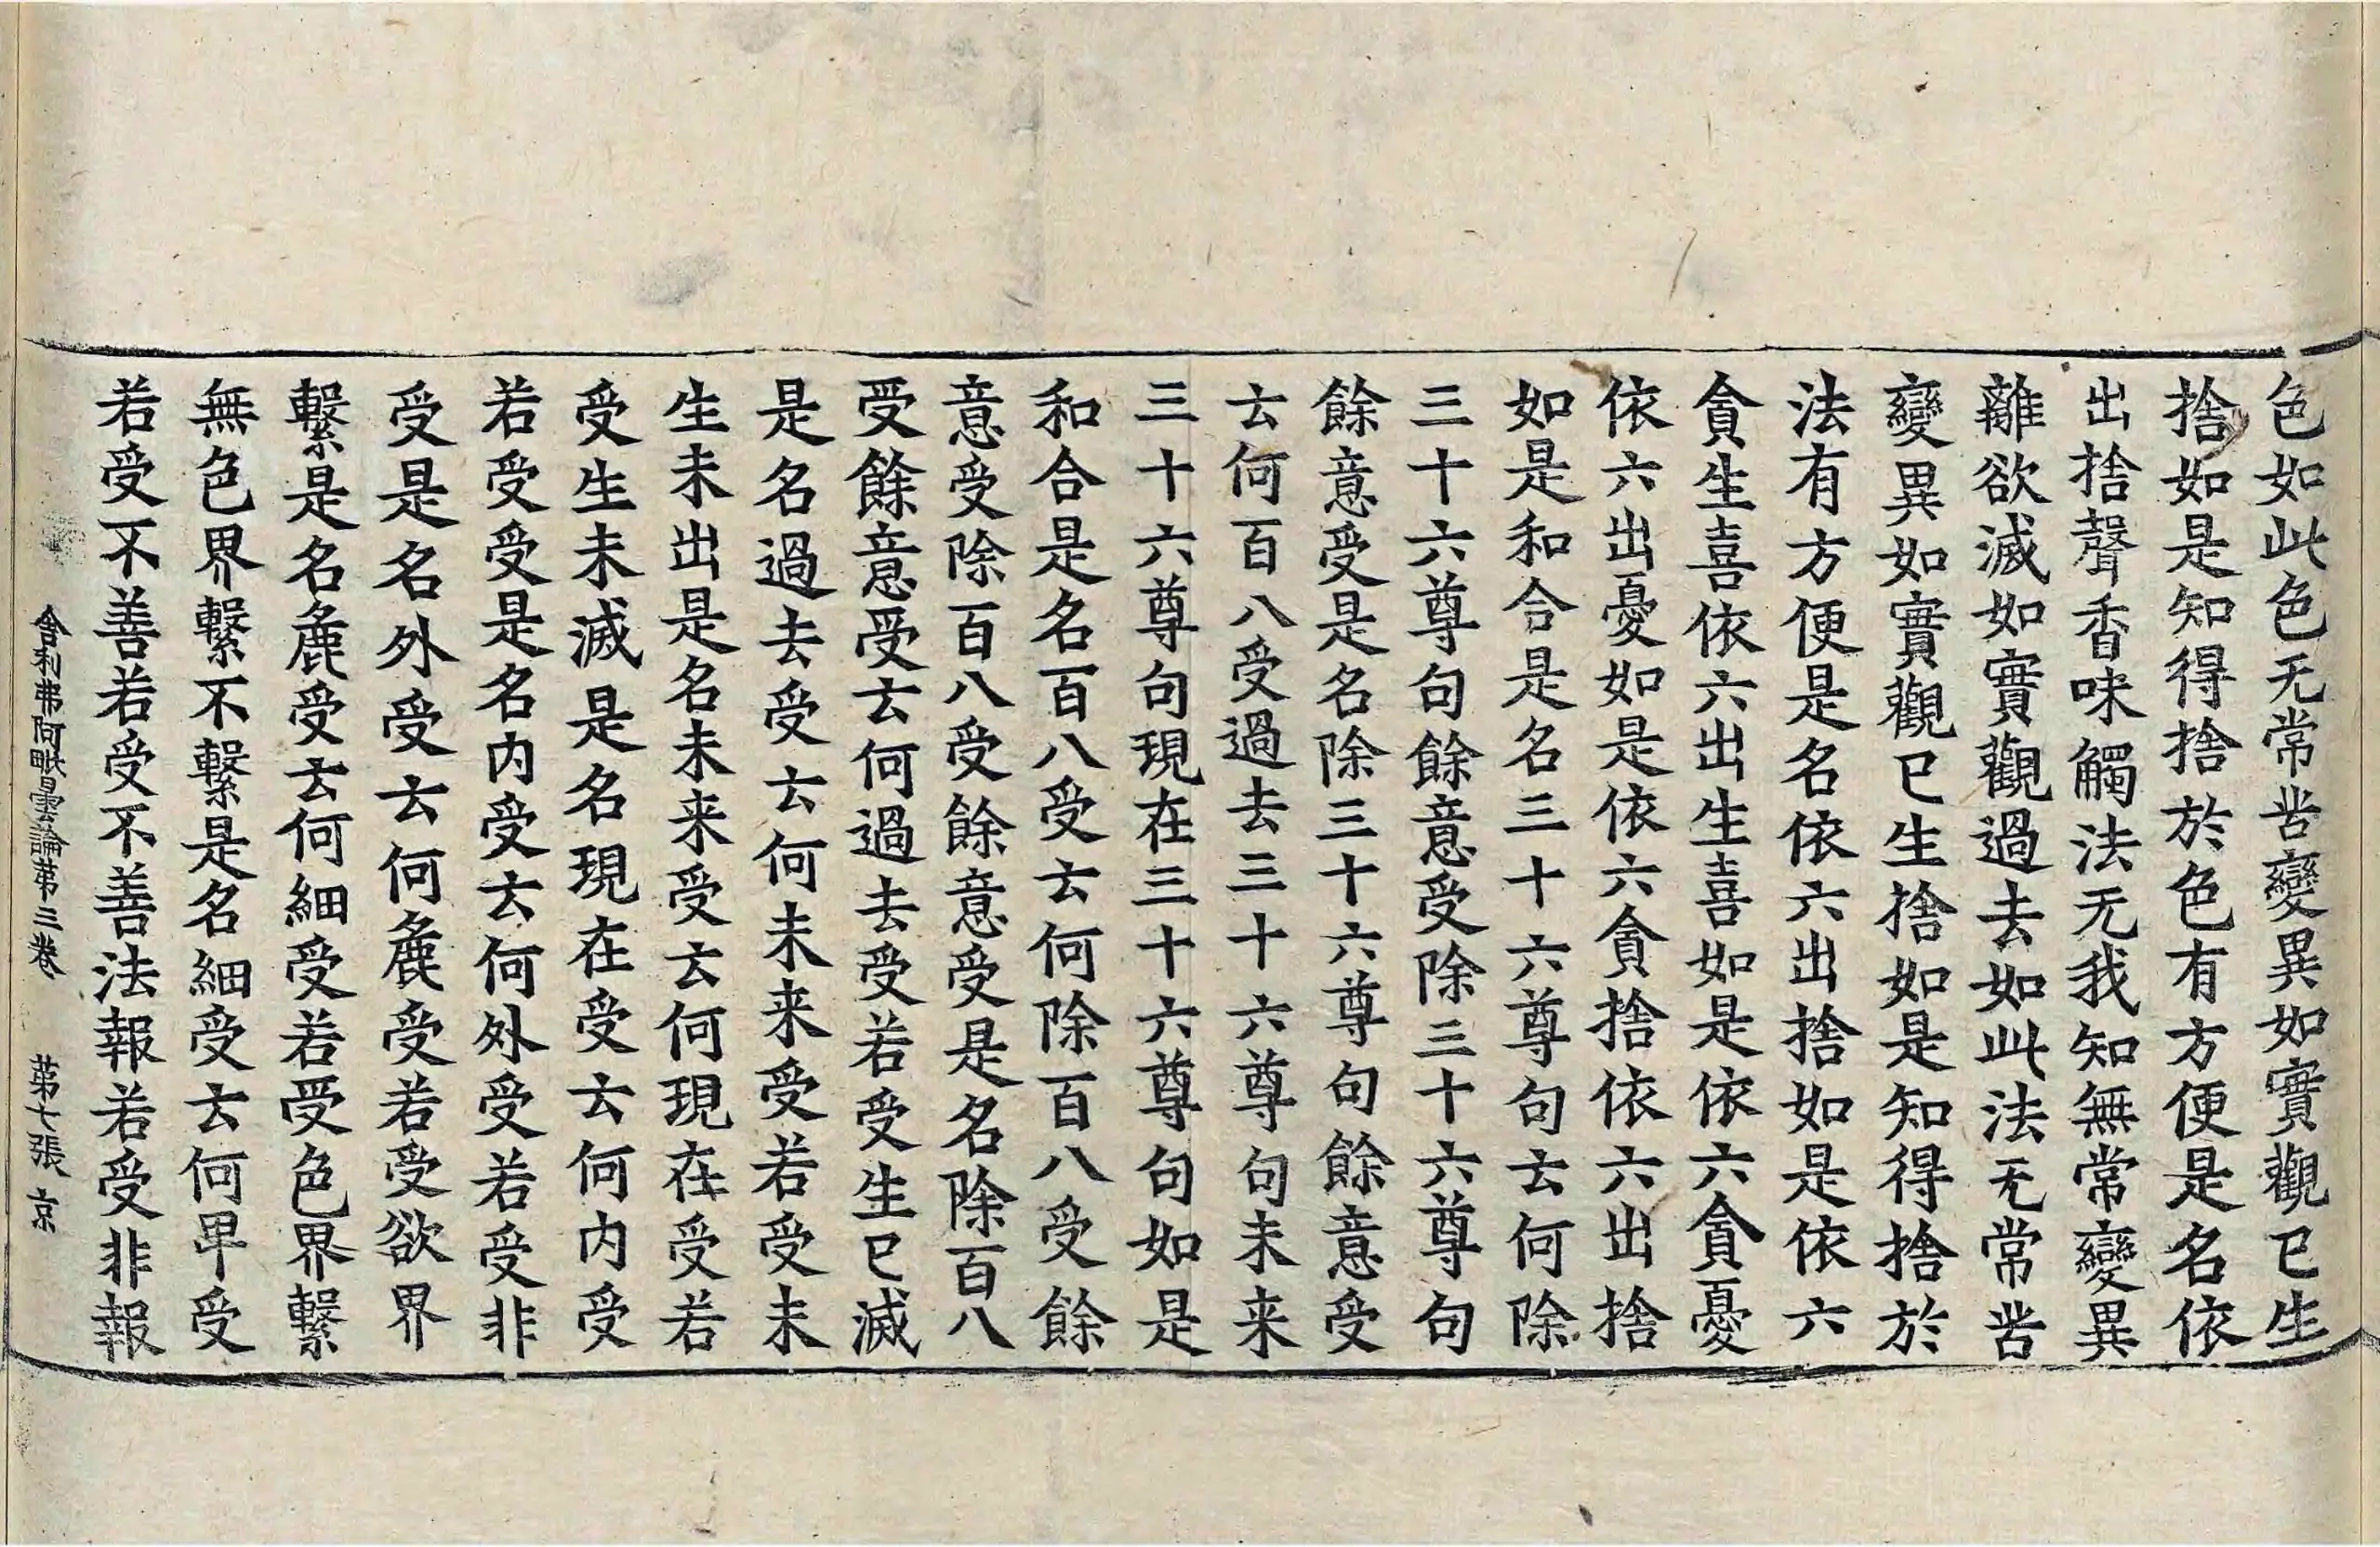 色如此色无常苦變異如實觀已生
捨如是知得捨於色有方便是名依
出捨聲香味觸法无我知無常變異
離欲滅如實觀過去如此法无常苦
變異如實觀已生捨如是知得捨於
法有方便是名依六出捨如是依六
貪生喜依六出生喜如是依六貪憂
依六出憂如是依六貪捨依六出捨
如是和合是名三十六尊句云何除
三十六尊句餘意受除三十六尊句
餘意受是名除三十六尊句餘意受
云何百八受過去三十六尊句未来
三十六尊句現在三十六尊句如是
和合是名百八受云何除百八受餘
意受除百八受餘意受是名除百八
受餘意受云何過去受若受生已滅
是名過去受云何未来受若受未
生未出是名未来受云何現在受若
受生未滅是名現在受云何内受
若受受是名内受云何外受若受非
受是名外受云何麁受若受欲界
繫是名麁受云何細受若受色界繫
無色界繫不繫是名細受云何卑受
若受不善若受不善法報若受非報
舍利弗阿毗曇論第三卷 第七張 京